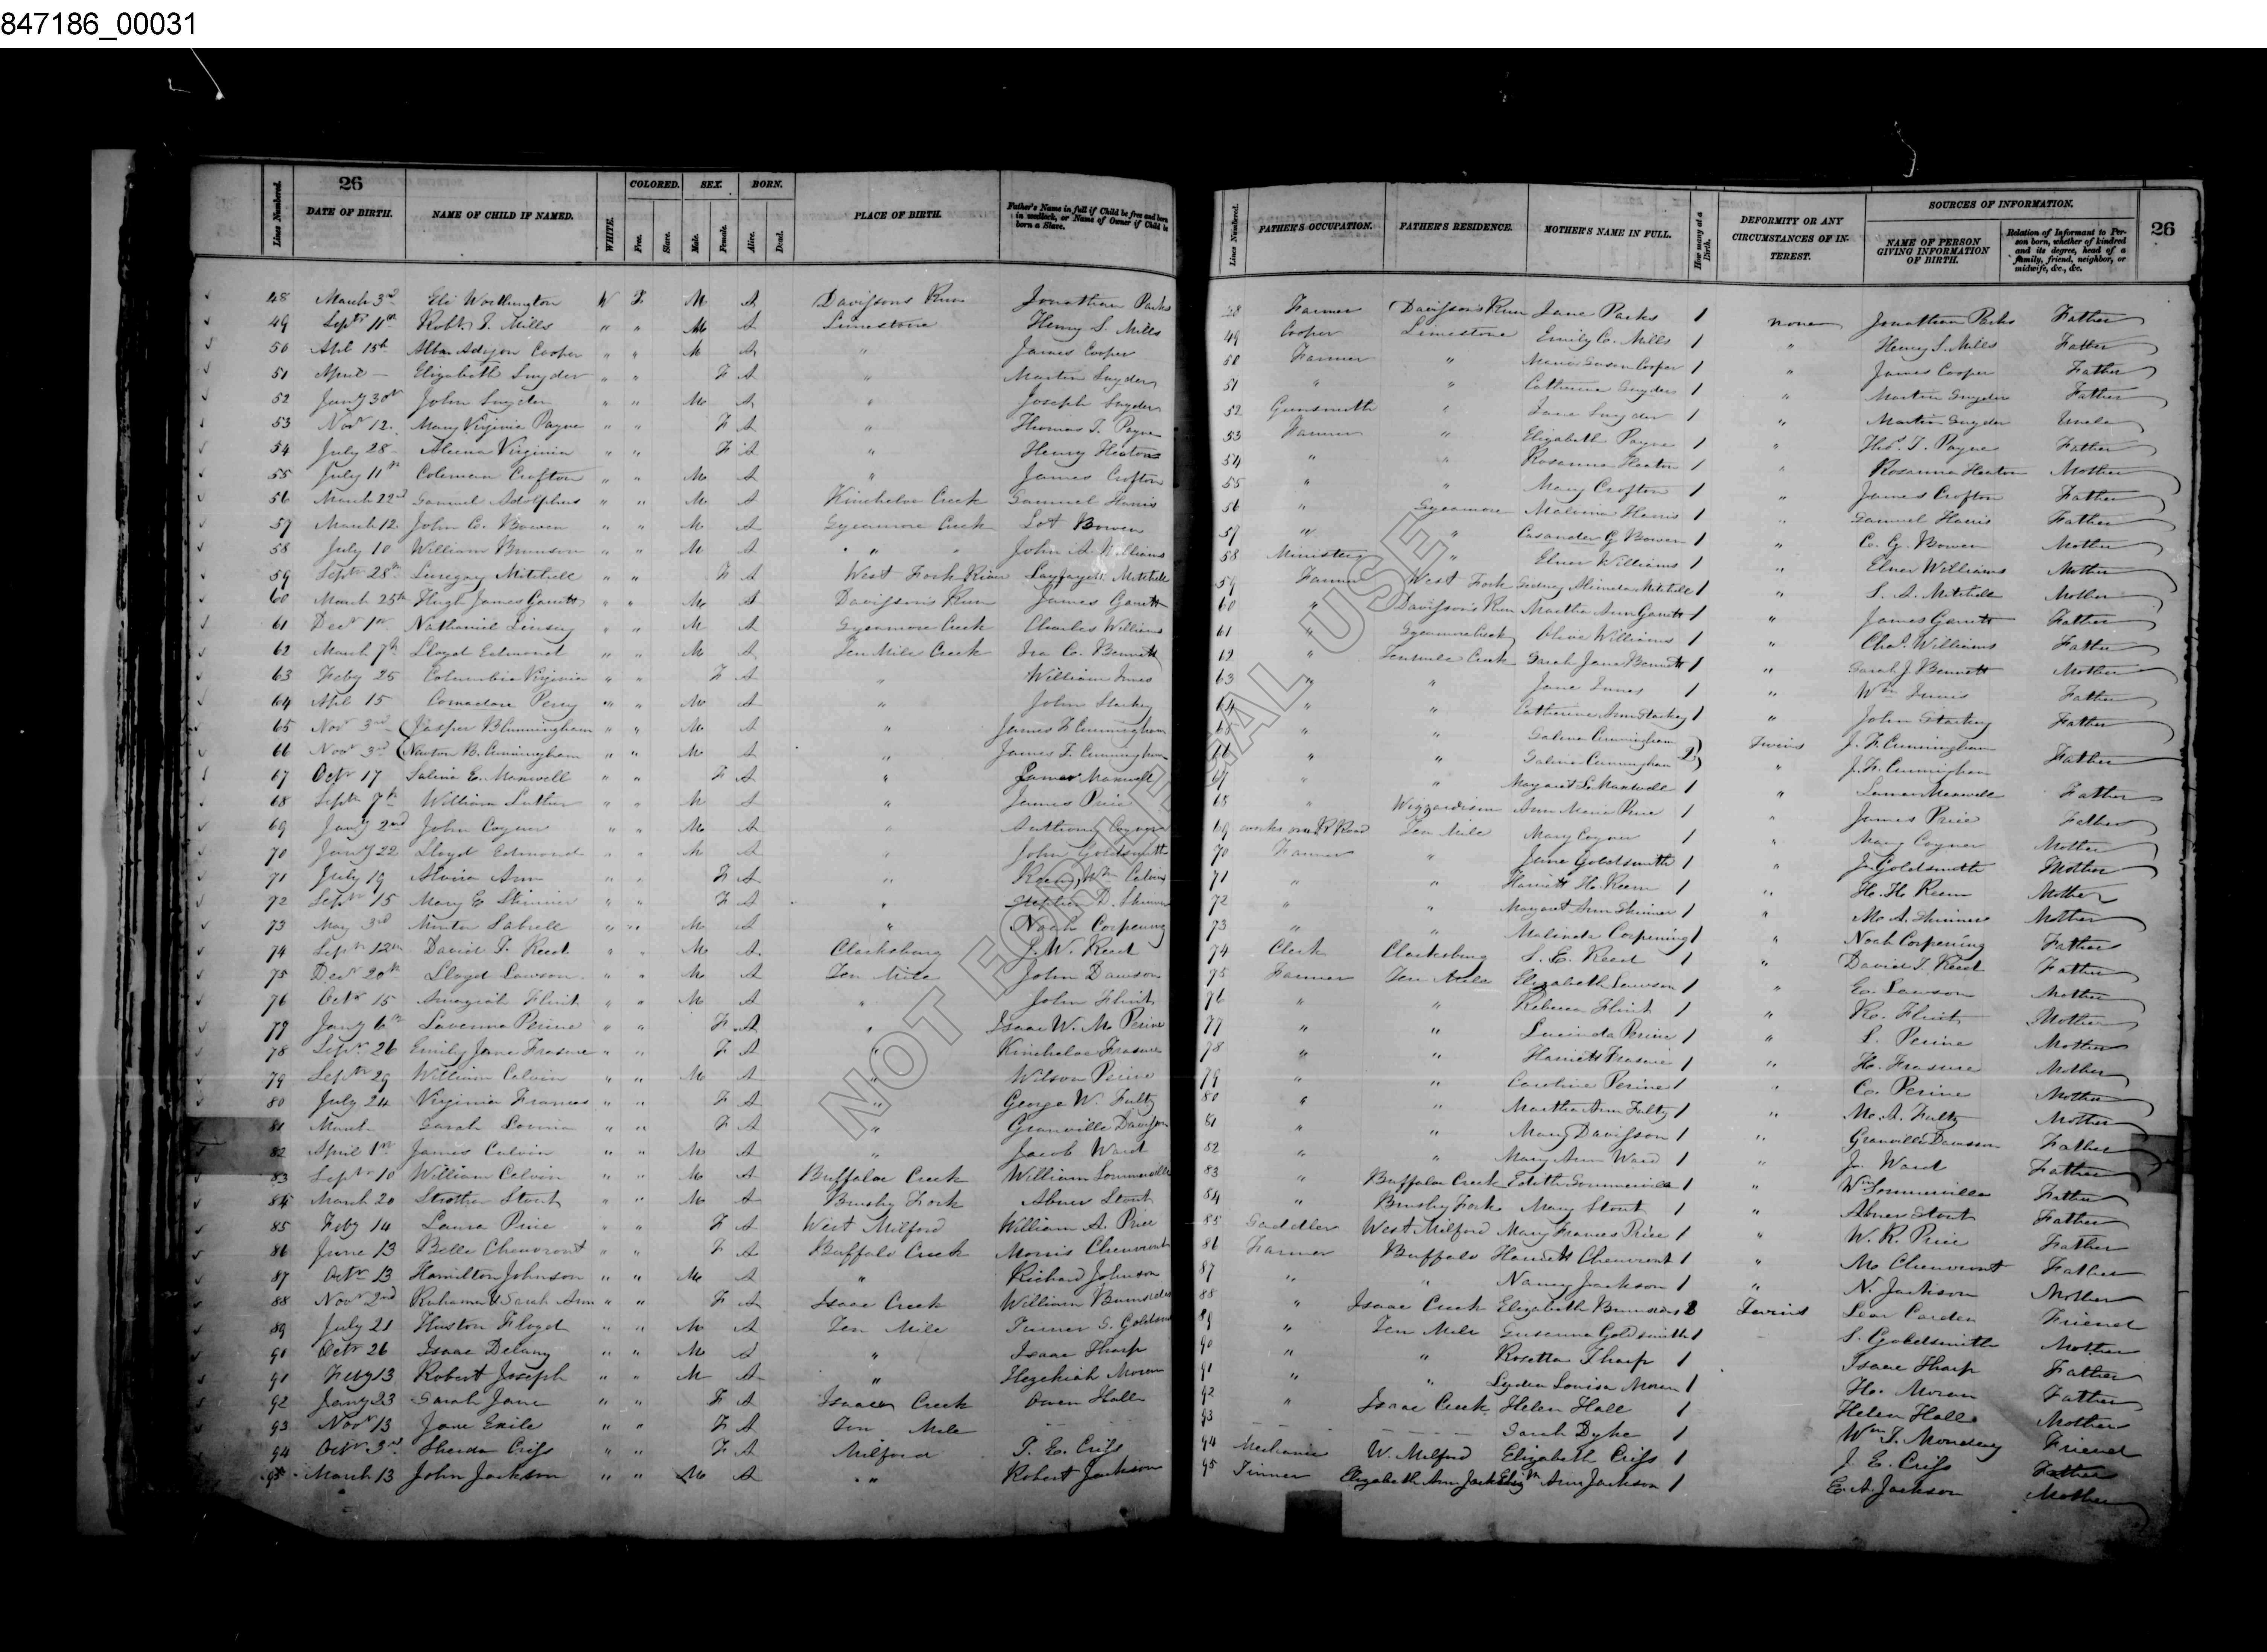 847186_00031
26
Lines Numbered.
DATE OF BIRTH.
NAME OF CHILD IF NAMED.
WHITE.
COLORED.
Free.
Slave.
SEX.
Male.
Female.
BORN.
Alive.
Dead.
PLACE OF BIRTH.
Father's Name in full if Child be free and born in wedlock, or Name of Owner if Child be born a Slave.
48 March 3rd Eli Worthington W F M A Davissons Run Jonathan Parks
49 Septr 11th Robt. T. Mills " " M A Limestone Henry S. Mills
50 Apl 15th Adison Cooper " " M A " James Cooper
51 April – Elizabeth Snyder " " F A " Martin Snyder
52 Jany 30th John Snyder " " M A " Joseph Snyder
53 Novr 12. Mary Virginia Payne " " F A " Thomas T. Payne
54 July 28 Virginia " " F A " Henry Heaton
55 July 11th Coleman Crofton " " M A " James Crofton
56 March 22nd Samuel Adolphus " " M A Kincheloe Creek Samuel Harris
57 March 12. John C. Bowen " " M A Sycamore Creek Lot Bowen
58 July 10 William Brunson " " M A " " John A. Williams
59 Septr 28th Mitchell " " F A West Fork River Mitchell
60 March 25th Hugh James Garrett " " M A Davisson's Run James Garrett
61 Decr 1st Nathaniel Linsey " " M A Sycamore Creek Charles Williams
62 March 7th Lloyd Edmond " " M A Ten Mile Creek Ira C. Bennett
63 Feby 25 Columbia Virginia " " F A " William
64 Apl 15 Comadore Perry " " M A " John Starkey
65 Novr 3rd Jasper B Cunningham " " M A " James F Cunningham
66 Novr 3rd Newton B. Cunningham " " M A " James F. Cunningham
67 Octr 17 Salina E. Maxwell " " F A " Maxwell
68 Septr 7th William Luther " " M A " James Price
69 Jany 2nd John Coyner " " M A " Anthony Coyner
70 Jany 22 Lloyd Edmond " " M A " John Goldsmith
71 July 19 Ann " " F A "
72 Septr 15 Mary E Skinner " " F A " Stephen D. Skinner
73 May 3rd " " M A " Noah Corpening
74 Septr 12th David T. Reed " " M A Clarksburg J. W. Reed
75 Decr 20th Lloyd Lawson " " M A Ten Mile John Dawson
76 Octr 15 Amaziah Flint " " M A " John Flint
77 Jany 6th Perine " " F A " Isaac W. M. Perine
78 Septr 26 Emily Jane Frasure " " F A " Kincheloe Frasure
79 Septr 29 William Calvin " " M A " Wilson Perine
80 July 24 Virginia Frances " " F A " George W. Fultz
81 March Sarah " " F A " Granville Davisson
82 April 1st James Calvin " " M A " Jacob Ward
83 Septr 10 William Calvin " " M A Buffaloe Creek William Sommerville
84 March 20 Strother Stout " " M A Brushy Fork Abner Stout
85 Feby 14 Laura Price " " F A West Milford William A. Price
86 June 13 Belle Cheuvront " " F A Buffalo Creek Morris Cheuvront
87 Octr 13 Hamilton Johnson " " M A " Richard Johnson
88 Novr 2nd Ruhama & Sarah Ann " " F A Isaac Creek William
89 July 21 Huston Floyd " " M A Ten Mile Turner G.
90 Octr 26 Isaac Delany " " M A " Isaac Tharp
91 Feby 13 Robert Joseph " " M A " Hezekiah Moran
92 Jany 23 Sarah Jane " " F A Isaac Creek Owen Hall
93 Novr 13 Jane Exile " " F A Ten Mile
94 Octr 3rd Criss " " F A Milford Criss
95 March 13 John Jackson " " M A " Robert Jackson
26
Lines Numbered.
FATHER'S OCCUPATION.
FATHER'S RESIDENCE.
MOTHER'S NAME IN FULL.
How many at a Birth.
DEFORMITY OR ANY CIRCUMSTANCES OF INTEREST.
SOURCES OF INFORMATION.
NAME OF PERSON GIVING INFORMATION OF BIRTH.
Relation of Informant to Person born, whether of kindred and its degree, head of a family, friend, neighbor, or midwife, &c., &c.
48 Farmer Davisson's Run Jane Parks 1 none Jonathan Parks Father
49 Cooper Limestone Emily C. Mills 1 " Henry S. Mills Father
50 Farmer " Maria Susan Cooper 1 " James Cooper Father
51 " " Catherine Snyder 1 " Martin Snyder Father
52 Gunsmith " Jane Snyder 1 " Martin Snyder Uncle
53 Farmer " Elizabeth Payne 1 " Thos. T. Payne Father
54 " " Rosanna Heaton 1 " Rosanna Heaton Mother
55 " " Mary Crofton 1 " James Crofton Father
56 " Sycamore Malvina Harris 1 " Samuel Harris Father
57 " " Casander G Bowen 1 " C. G. Bowen Mother
58 Minister " Elnor Williams 1 " Elnor Williams Mother
59 Farmer West Fork Mitchell 1 " S. A. Mitchell Mother
60 " Davisson's Run Martha Ann Garrett 1 " James Garrett Father
61 " Sycamore Creek Olive Williams 1 " Chas. Williams Father
62 " Tenmile Creek Sarah Jane Bennett 1 " Sarah J Bennett Mother
63 " " Jane 1 " Wm Father
64 " " Catherine Ann Starkey 1 " John Starkey Father
65 " " Salina Cunningham 2 Twins J. F. Cunningham
66 " " Salina Cunningham " J. F. Cunningham Father
67 " " Margaret S. Maxwell 1 " Maxwell Father
68 " Ann Maria Price 1 " James Price Father
69 works on R Road Ten Mile Mary Coyner 1 " Mary Coyner Mother
70 Farmer " Jane Goldsmith 1 " J. Goldsmith Mother
71 " " Harriett H. 1 " H. H. Mother
72 " " Margaret Ann Skinner 1 " M. A. Skinner Mother
73 " " Malinda Corpening 1 " Noah Corpening Father
74 Clerk Clarksburg S. E. Reed 1 " David T. Reed Father
75 Farmer Ten Mile Elizabeth Lawson 1 " E. Lawson Mother
76 " " Rebecca Flint 1 " R. Flint Mother
77 " " Lucinda Perine 1 " L. Perine Mother
78 " " Harriett Frasure 1 " H. Frasure Mother
79 " " Caroline Perine 1 " C. Perine Mother
80 " " Martha Ann Fultz 1 " M. A. Fultz Mother
81 " " Mary Davisson 1 " Granville Davisson Father
82 " " Mary Ann Ward 1 " J. Ward Father
83 " Buffaloe Creek Edith Sommerville 1 " Wm Sommerville Father
84 " Brushy Fork Mary Stout 1 " Abner Stout Father
85 Saddler West Milford Mary Frances Price 1 " W. R. Price Father
86 Farmer Buffalo Harriett Cheuvront 1 " M Cheuvront Father
87 " " Nancy Jackson 1 " N. Jackson Mother
88 " Isaac Creek Elizabeth 2 Twins Friend
89 " Ten Mile Susanna Goldsmith 1 – S. Goldsmith Mother
90 " " Rosetta Tharp 1 Isaac Tharp Father
91 " " Lydia Louisa Moran 1 H. Moran Father
92 " Isaac Creek Helen Hall 1 Helen Hall Mother
93 Sarah Dyke 1 Wm T. Monday Friend
94 Mechanic W. Milford Elizabeth Criss 1 J. E. Criss Father
95 Tinner Elizabeth Ann Jack Ann Jackson 1 E. A. Jackson Mother
NOT FOR LEGAL USE